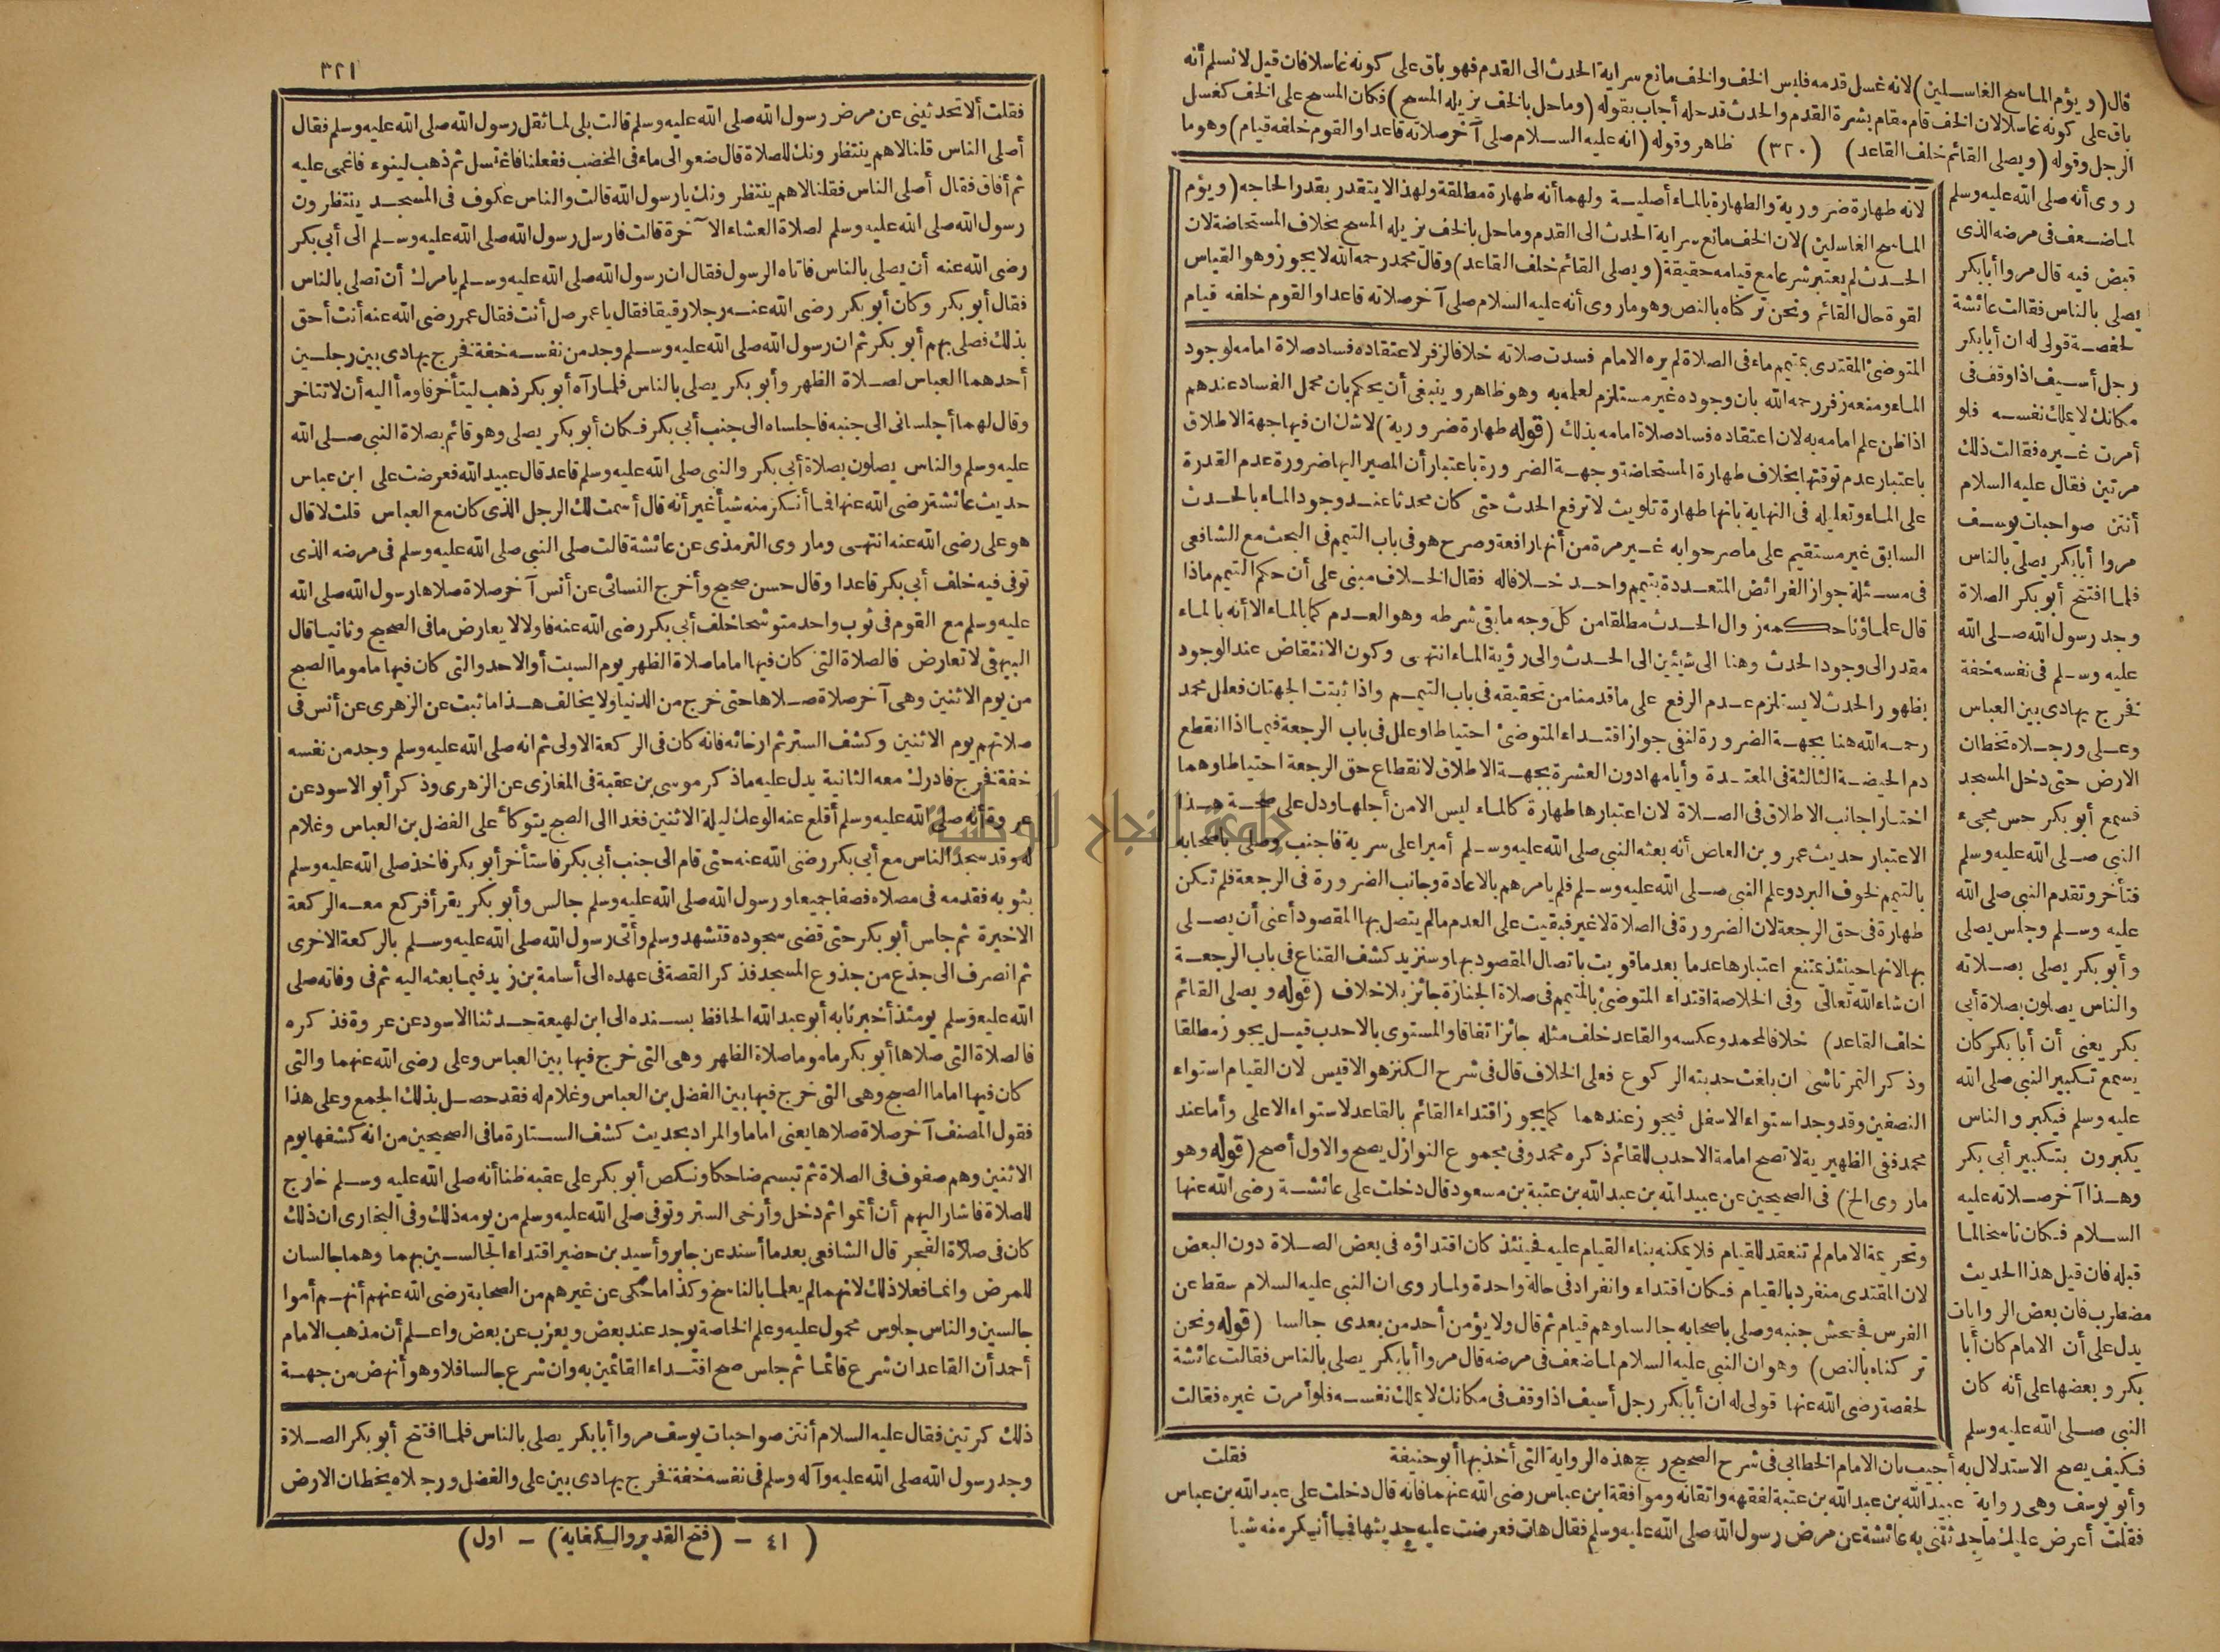 قال (ويؤم الماسح الغاسلين) لانه غسل قدمه فلبس الخف والخف مانع سراية الحدث الى القدم فهو باق على كونه غاسلا فان قيل لا نسلم أنه
باق على كونه غاسلا لان الخف قام مقام بشرة القدم والحدث قد حله أجاب بقوله (وما حل بالخف يزيله المسح) فكان المسح على الخف كغسل
الرجل وقوله (ويصلى القائم خلف القاعد) (٣٢٠) ظاهر وقوله (انه عليه السلام صلى آخر صلاته قاعدا والقوم خلفه قيام) وهو ما
روى أنه صلى الله عليه وسلم
لما ضعف فى مرضه الذى
قبض فيه قال مروا أبا بكر
يصلى بالناس فقالت عائشة
لحفصة قولى له ان أبا بكر
رجل أسيف اذا وقف فى
مكانك لا يملك نفسه فلو
أمرت غيره فقالت ذلك
مرتين فقال عليه السلام
أنتن صواحبات يوسف
مروا أبا بكر يصلى بالناس
فلما افتتح أبو بكر الصلاة
وجد رسول الله صلى الله
عليه وسلم فى نفسه خفة
فخرج يهادى بين العباس
وعلى ورجلاه تخطان
الارض حتى دخل المسجد
فسمع أبو بكر حس مجىء
النبى صلى الله عليه وسلم
فتأخر وتقدم النبى صلى الله
عليه وسلم وجلس يصلى
وأبو بكر يصلى بصلاته
والناس يصلون بصلاة أبى
بكر يعنى أن أبا بكر كان
يسمع تكبير النبى صلى الله
عليه وسلم فيكبر والناس
يكبرون بتكبير أبى بكر
وهذا آخر صلاته عليه
السلام فكان ناسخا لما
قبله فان قيل هذا الحديث
مضطرب فان بعض الروايات
يدل على أن الامام كان أبا
بكر وبعضها على أنه كان
النبى صلى الله عليه وسلم
لانه طهارة ضرورية والطهارة بالماء أصلية ولهما أنه طهارة مطلقة ولهذا لا يتقدر بقدر الحاجه (ويؤم
الماسح الغاسلين) لان الخف مانع سراية الحدث الى القدم وما حل بالخف يزيله المسح بخلاف المستحاضة لان
الحدث لم يعتبر شرعا مع قيامه حقيقة (ويصلى القائم خلف القاعد) وقال محمد رحمه الله لا يجوز وهو القياس
لقوة حال القائم ونحن تركناه بالنص وهو ما روى أنه عليه السلام صلى آخر صلاته قاعدا والقوم خلفه قيام
المتوضئ المقتدى بمتيمم ماء فى الصلاة لم يره الامام فسدت صلاته خلافا لزفر لاعتقاده فساد صلاة امامه لوجود
الماء ومنعه زفر رحمه الله بان وجوده غير مستلزم لعلمه به وهو ظاهر وينبغى أن يحكم بان محمل الفساد عندهم
اذا ظن علم امامه به لان اعتقاده فساد صلاة امامه بذلك (قوله طهارة ضرورية) لا شك ان فيها جهة الاطلاق
باعتبار عدم توقتها بخلاف طهارة المستحاضة وجهة الضرورة باعتبار أن المصير اليها ضرورة عدم القدرة
على الماء وتعليله فى النهاية بانها طهارة تلويث لا ترفع الحدث حتى كان محدثا عند وجود الماء بالحدث
السابق غير مستقيم على ما صرحوا به غير مرة من أنها رافعة وصرح هو فى باب التيمم فى البحث مع الشافعى
فى مسئلة جواز الفرائض المتعددة بتيمم واحد خلافا له فقال الخلاف مبنى على أن حكم التيمم ماذا
قال علماؤنا حكمه زوال الحدث مطلقا من كل وجه ما بقى شرطه وهو العدم كما بالماء الا أنه بالماء
مقدر الى وجود الحدث وهنا الى شيئين الى الحدث والى رؤية الماء انتهى وكون الانتقاض عند الوجود
بظهور الحدث لا يستلزم عدم الرفع على ما قدمنا من تحقيقه فى باب التيمم واذا ثبتت الجهتان فعلل محمد
رحمه الله هنا بجهة الضرورة لنفى جواز اقتداء المتوضئ احتياطا وعلل فى باب الرجعة فيما اذا انقطع
دم الحيضة الثالثة فى المعتدة وأيامها دون العشرة بجهة الاطلاق لانقطاع حق الرجعة احتياطا وهما
اختارا جانب الاطلاق فى الصلاة لان اعتبارها طهارة كالماء ليس الا من أجلها ودل على صحة هذا
الاعتبار حديث عمرو بن العاص أنه بعثه النبى صلى الله عليه وسلم أميرا على سرية فاجنب وصلى باصحابه
بالتيمم لخوف البرد وعلم النبى صلى الله عليه وسلم فلم يامرهم بالاعادة وجانب الضرورة فى الرجعة فلم تكن
طهارة فى حق الرجعة لان الضرورة فى الصلاة لا غير فبقيت على العدم ما لم يتصل بها المقصود أعنى أن يصلى
بها لانها حينئذ يمتنع اعتبارها عدما بعد ما قويت باتصال المقصود بها وسنزيد كشف القناع فى باب الرجعة
ان شاء الله تعالى وفى الخلاصة اقتداء المتوضئ بالمتيمم فى صلاة الجنازة جائز بلا خلاف (قوله ويصلى القائم
خلف القاعد) خلافا لمحمد وعكسه والقاعد خلف مثله جائز اتفاقا والمستوى بالاحدب قيل يجوز مطلقا
وذكر التمرتاشى ان بلغت حدبته الركوع فعلى الخلاف قال فى شرح الكنز هو الاقيس لان القيام استواء
النصفين وقد وجد استواء الاسفل فيجوز عندهما كما يجوز اقتداء القائم بالقاعد لاستواء الاعلى وأما عند
محمد ففى الظهيرية لا تصح امامة الاحدب للقائم ذكره محمد وفى مجموع النوازل يصح والاول أصح (قوله وهو
ما روى الخ) فى الصحيحين عن عبيد الله بن عبد الله بن عتبة بن مسعود قال دخلت على عائشة رضى الله عنها
وتحريمة الامام لم تنعقد للقيام فلا يمكنه بناء القيام عليه فحينئذ كان اقتداؤه فى بعض الصلاة دون البعض
لان المقتدى منفرد بالقيام فكان اقتداء وانفراد فى حالة واحدة ولما روى ان النبى عليه السلام سقط عن
الفرس فجحش جنبه وصلى باصحابه جالسا وهم قيام ثم قال ولا يؤمن أحد من بعدى جالسا (قوله ونحن
تركناه بالنص) وهو ان النبى عليه السلام لما ضعف فى مرضه قال مروا أبا بكر يصلى بالناس فقالت عائشة
لحفصة رضى الله عنها قولى له ان أبا بكر رجل أسيف اذا وقف فى مكانك لا يملك نفسه فلو أمرت غيره فقالت
فكيف يصح الاستدلال به أجيب بان الامام الخطابى فى شرح الصحيح رجح هذه الرواية التى أخذ بها أبو حنيفة
فقلت
وأبو يوسف وهى رواية عبيد الله بن عبد الله بن عتبة لفقهه واتقانه وموافقة ابن عباس رضى الله عنهما فانه قال دخلت على عبد الله بن عباس
فقلت أعرض عليك ما حدثتنى به عائشة عن مرض رسول الله صلى الله عليه وسلم فقال هات فعرضت عليه حديثها فيا أنكره منه شيا
٣٢١
فقلت ألا تحدثينى عن مرض رسول الله صلى الله عليه وسلم قالت بلى لما ثقل رسول الله صلى الله عليه وسلم فقال
أصلى الناس قلنا لا هم ينتظرونك للصلاة قال ضعوا لى ماء فى المخضب ففعلنا فاغتسل ثم ذهب لينوء فاغمى عليه
ثم أفاق فقال أصلى الناس فقلنا لا هم ينتظرونك يا رسول الله قالت والناس عكوف فى المسجد ينتظرون
رسول الله صلى الله عليه وسلم لصلاة العشاء الآخرة قالت فارسل رسول الله صلى الله عليه وسلم الى أبى بكر
رضى الله عنه أن يصلى بالناس فاتاه الرسول فقال ان رسول الله صلى الله عليه وسلم يامرك أن تصلى بالناس
فقال أبو بكر وكان أبو بكر رضى الله عنه رجلا رقيقا فقال يا عمر صل أنت فقال عمر رضى الله عنه أنت أحق
بذلك فصلى بهم أبو بكر ثم ان رسول الله صلى الله عليه وسلم وجد من نفسه خفة فخرج يهادى بين رجلين
أحدهما العباس لصلاة الظهر وأبو بكر يصلى بالناس فلما رآه أبو بكر ذهب ليتأخر فاومأ اليه أن لا تتاخر
وقال لهما أجلسانى الى جنبه فاجلساه الى جنب أبى بكر فكان أبو بكر يصلى وهو قائم بصلاة النبى صلى الله
عليه وسلم والناس يصلون بصلاة أبى بكر والنبى صلى الله عليه وسلم قاعد قال عبيد الله فعرضت على ابن عباس
حديث عائشة رضى الله عنها فما أنكر منه شيأ غير أنه قال أسمت لك الرجل الذى كان مع العباس قلت لا قال
هو على رضى الله عنه انتهى وما روى الترمذى عن عائشة قالت صلى النبى صلى الله عليه وسلم فى مرضه الذى
توفى فيه خلف أبى بكر قاعدا وقال حسن صحيح وأخرج النسائى عن أنس آخر صلاة صلاها رسول الله صلى الله
عليه وسلم مع القوم فى ثوب واحد متوشحا خلف أبى بكر رضى الله عنه فاولا لا يعارض ما فى الصحيح وثانيا قال
البيهقى لا تعارض فالصلاة التى كان فيها اماما صلاة الظهر يوم السبت أو الاحد والتى كان فيها ماموما الصبح
من يوم الاثنين وهى آخر صلاة صلاها حتى خرج من الدنيا ولا يخالف هذا ما ثبت عن الزهرى عن أنس فى
صلاتهم يوم الاثنين وكشف الستر ثم ارخائه فانه كان فى الركعة الاولى ثم انه صلى الله عليه وسلم وجد من نفسه
خفة فخرج فادرك معه الثانية يدل عليه ما ذكر موسى بن عقبة فى المغازى عن الزهرى وذكر أبو الاسود عن
عروة أنه صلى الله عليه وسلم أقلع عنه الوعك ليلة الاثنين فغدا الى الصبح يتوكأ على الفضل بن العباس وغلام
له وقد سجد الناس مع أبى بكر رضى الله عنه حتى قام الى جنب أبى بكر فاستأخر أبو بكر فاخذ صلى الله عليه وسلم
بثوبه فقدمه فى مصلاه فصفا جميعا ورسول الله صلى الله عليه وسلم جالس وأبو بكر يقرأ فركع معه الركعة
الاخيرة ثم جلس أبو بكر حتى قضى سجوده فتشهد وسلم وأتى رسول الله صلى الله عليه وسلم بالركعة الاخرى
ثم انصرف الى جذع من جذوع المسجد فذكر القصة فى عهده الى أسامة بن زيد فيما بعثه اليه ثم فى وفاته صلى
الله عليه وسلم يومئذ أخبرنا به أبو عبد الله الحافظ بسنده الى ابن لهيعة حدثنا الاسود عن عروة فذكره
فالصلاة التى صلاها أبو بكر ماموما صلاة الظهر وهى التى خرج فيها بين العباس وعلى رضى الله عنهما والتى
كان فيها اماما الصبح وهى التى خرج فيها بين الفضل بن العباس وغلام له فقد حصل بذلك الجمع وعلى هذا
فقول المصنف آخر صلاة صلاها يعنى اماما والمراد بحديث كشف الستارة ما فى الصحيحين من انه كشفها يوم
الاثنين وهم صفوف فى الصلاة ثم تبسم ضاحكا ونكص أبو بكر على عقبه ظنا أنه صلى الله عليه وسلم خارج
للصلاة فاشار اليهم أن أتموا ثم دخل وأرخى الستر وتوفى صلى الله عليه وسلم من يومه ذلك وفى البخارى ان ذلك
كان فى صلاة الفجر قال الشافعى بعد ما أسند عن جابر وأسيد بن حضير اقتداء الجالسين بهما وهما جالسان
للمرض وانما فعلا ذلك لانهما لم يعلما بالناسخ وكذا ما حكى عن غيرهم من الصحابة رضى الله عنهم أنهم أموا
جالسين والناس جلوس محمول عليه وعلم الخاصة يوجد عند بعض ويعزب عن بعض واعلم أن مذهب الامام
أحمد أن القاعد ان شرع قائما ثم جلس صح اقتداء القائمين به وان شرع جالسا فلا وهو أنهض من جهة
ذلك كرتين فقال عليه السلام أنتن صواحبات يوسف مروا أبا بكر يصلى بالناس فلما افتتح أبو بكر الصلاة
وجد رسول الله صلى الله عليه وآله وسلم فى نفسه خفة فخرج يهادى بين على والفضل ورجلاه يخطان الارض
(٤١ - (فتح القدير والكفايه) - اول)
جامعة النجاح الوطنية